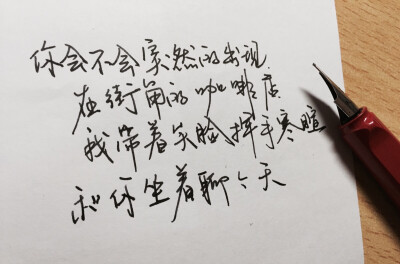 你会不会突然的出现
在街角的咖啡店
我带着笑脸挥手寒暄
和你坐着聊聊天